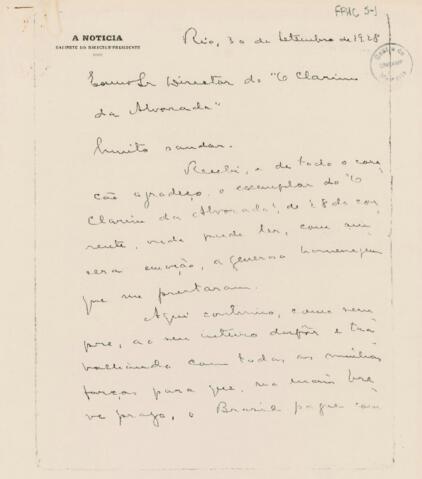 FPAC S-1
A NOTICIA
GABINETE DO DIRECTOR-PRESIDENTE
Rio, 30 de Setembro de 1928
Exmo Sr Director do "O Clarim
da Alvorada"
Muito saudar.
Recebi, e de todo o cora-
ção agradeço, o exemplar do "O
Clarim da Alvorada", de 28 do cor-
rente, onde pude ler, com sin-
cera emoção, a generosa homenagem
que me prestaram.
Aqui continuo, como sem
pre, ao seu inteiro dispôr e tra
balhando com todas as minhas
forças para que, no mais bre
ve prazo, o Brasil pague com